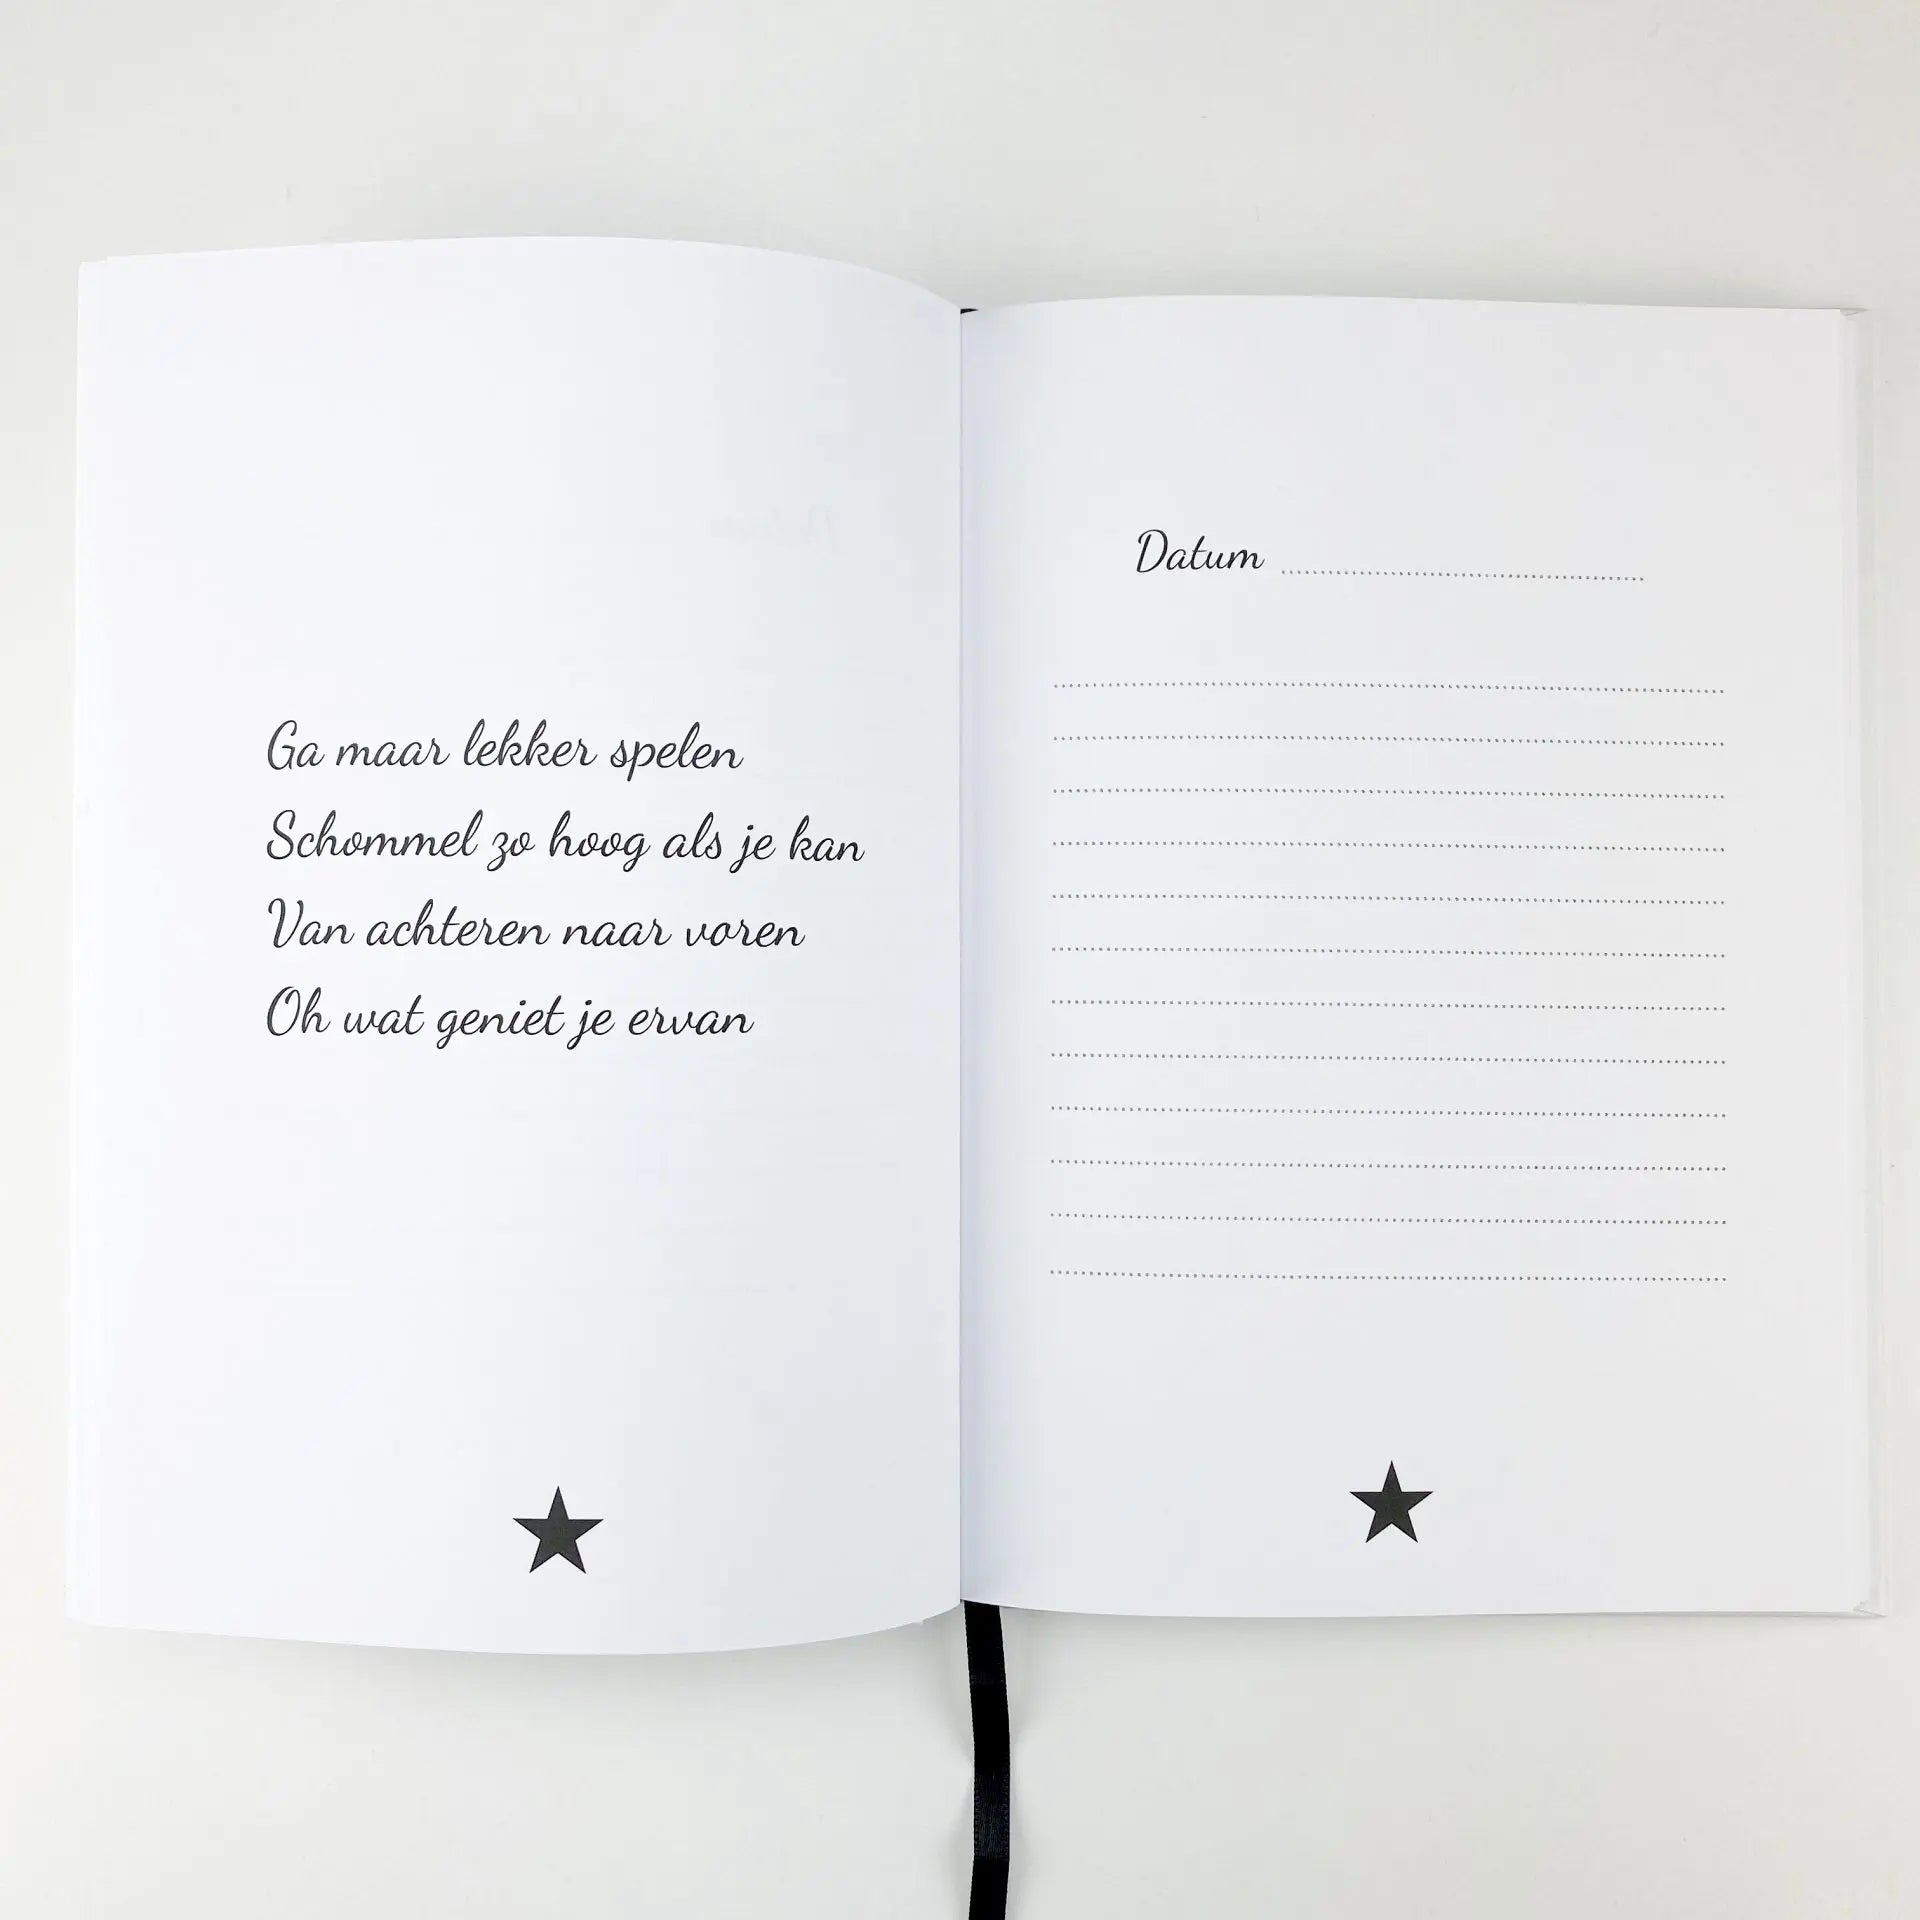 Ga maar lekker spelen
Schommel zo hoog als je kan
Van achteren naar voren
Oh wat geniet je ervan
Datum